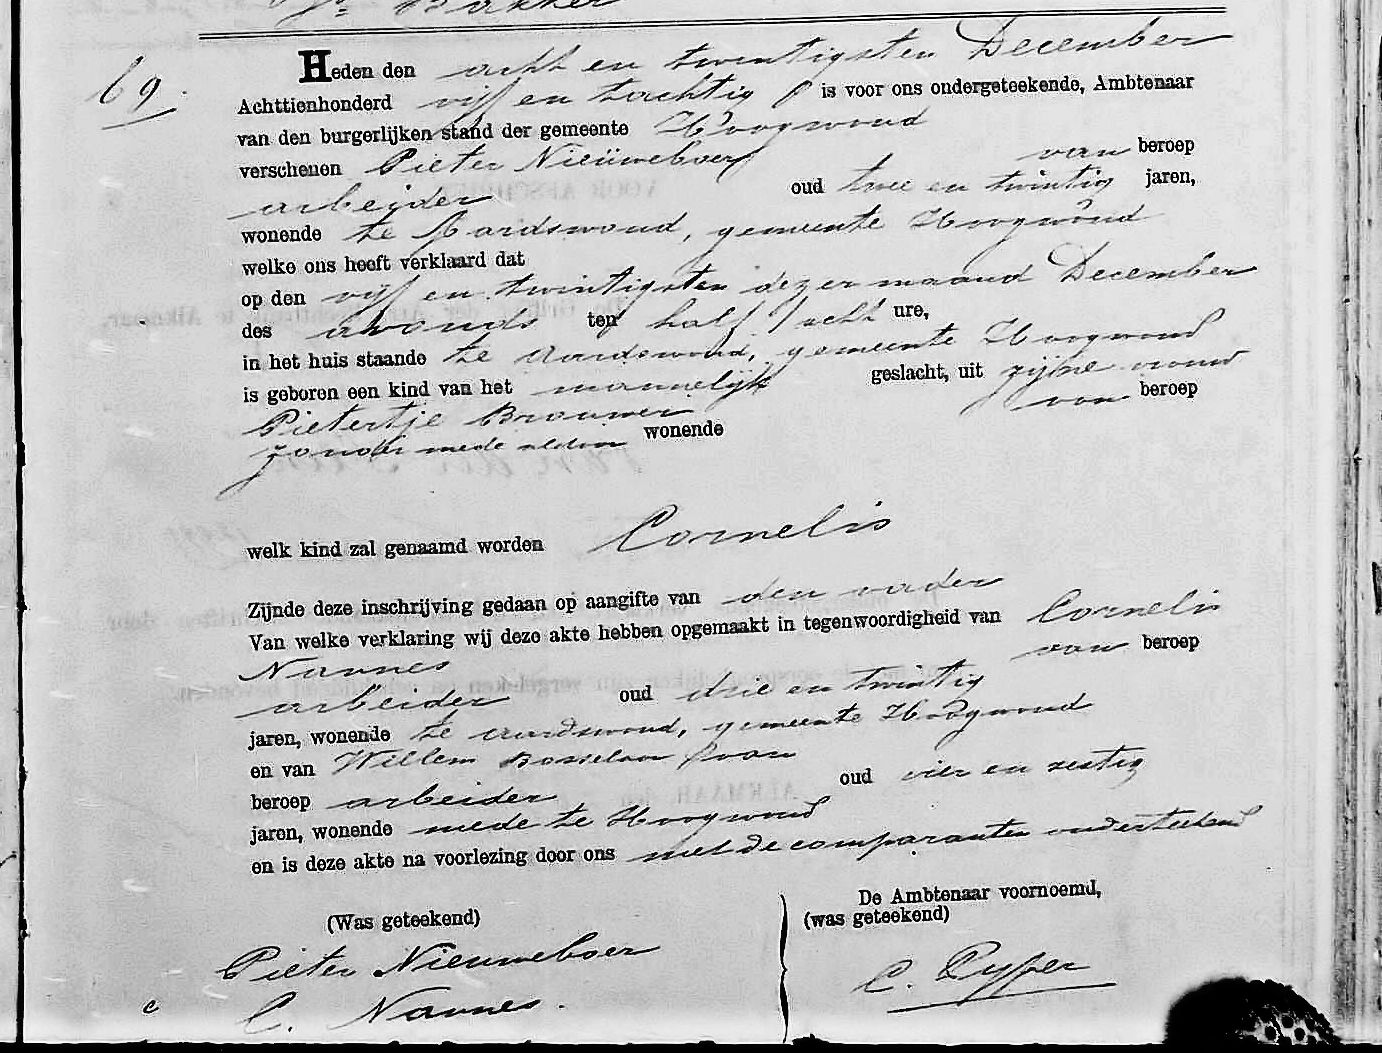 Bakker
69.
Heden den acht en twintigsten December
Achttienhonderd vijf en tachtig is voor ons ondergeteekende, Ambtenaar
van den burgerlijken stand der gemeente Hoogwoud
verschenen Pieter Nieuweboer van beroep
arbeider oud twee en twintig jaren,
wonende te Aardswoud, gemeente Hoogwoud
welke ons heeft verklaard dat
op den vijf en twintigsten dezer maand December
des avonds ten half acht ure,
in het huis staande te Aardswoud, gemeente Hoogwoud
is geboren een kind van het mannelijk geslacht, uit zijne vrouw
Pietertje Brouwer van beroep
zonder mede aldaar wonende
welk kind zal genaamd worden Cornelis
Zijnde deze inschrijving gedaan op aangifte van den vader
Van welke verklaring wij deze akte hebben opgemaakt in tegenwoordigheid van Cornelis
Nannes van beroep
arbeider oud drie en twintig
jaren, wonende te Aardswoud, gemeente Hoogwoud
en van Willem van
beroep arbeider oud vier en zestig
jaren, wonende mede te Hoogwoud
en is deze akte na voorlezing door ons met de comparanten onderteekend
De Ambtenaar voornoemd,
(Was geteekend) (was geteekend)
Pieter Nieuweboer
C. Nannes. C. Pyper